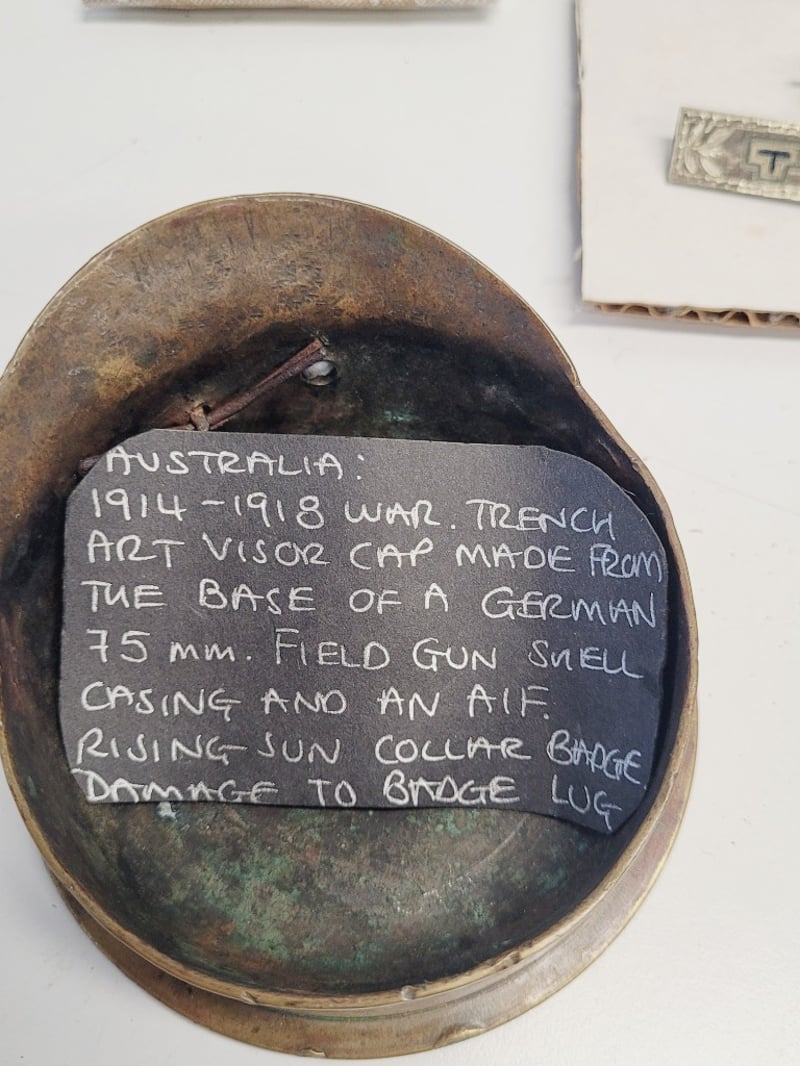 T
AUSTRALIA:
1914-1918 WAR. TRENCH
ART VISOR CAP MADE FROM
THE BASE OF A GERMAN
75 mm. FIELD GUN SHELL
CASING AND AN AIF.
RISING SUN COLLAR BADGE
DAMAGE TO BADGE LUG